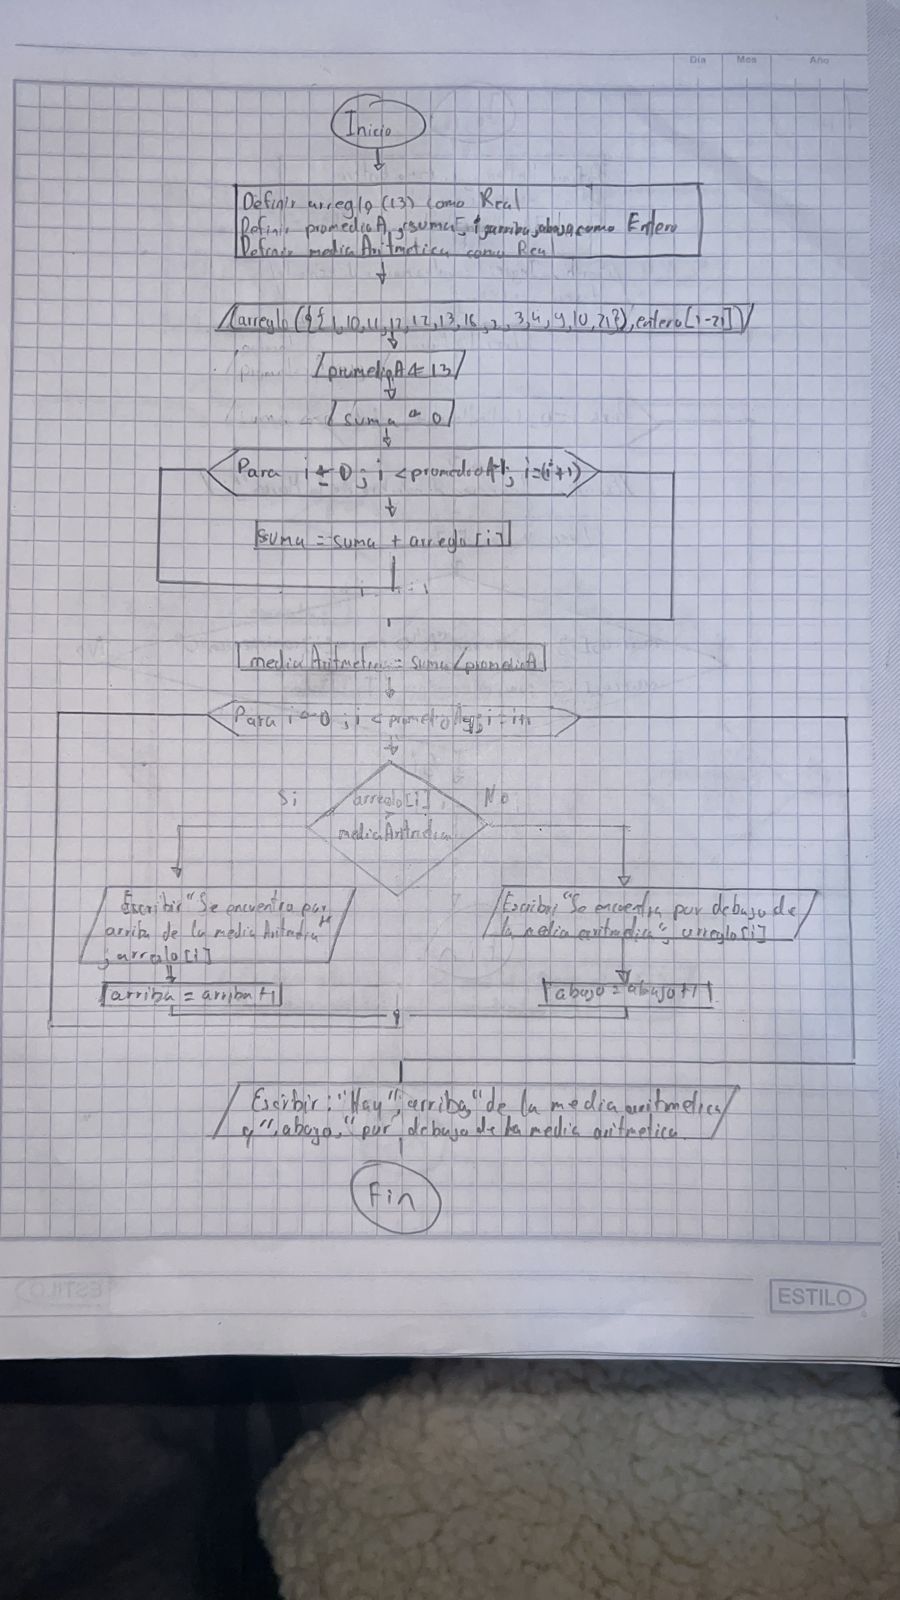 Día Mes Año
Inicio
Definir arreglo (13) como Real
Definir promedioA, suma, i, arriba, abajo como Entero
Definir mediaAritmetica como Real
arreglo ({{1,10,11,12,12,13,16,2,3,4,9,10,21}), entero[1-21])
promedioA ← 13
suma ← 0
Para i ← 0; i < promedioA-1; i=(i+1)
suma = suma + arreglo[i]
mediaAritmetica = suma/promedioA
Para i ← 0; i < i = i+1
Si
arreglo[i]
No
>
mediaAritmetica
Escribir "Se encuentra por
arriba de la media Aritmetica"
; arreglo[i]
Escribir "Se encuentra por debajo de
la media aritmetica"; arreglo[i]
arriba = arriba+1
abajo = abajo+1
Escribir: "Hay", arriba, "de la media aritmetica
y", abajo, "por debajo de la media aritmetica
Fin
ESTILO